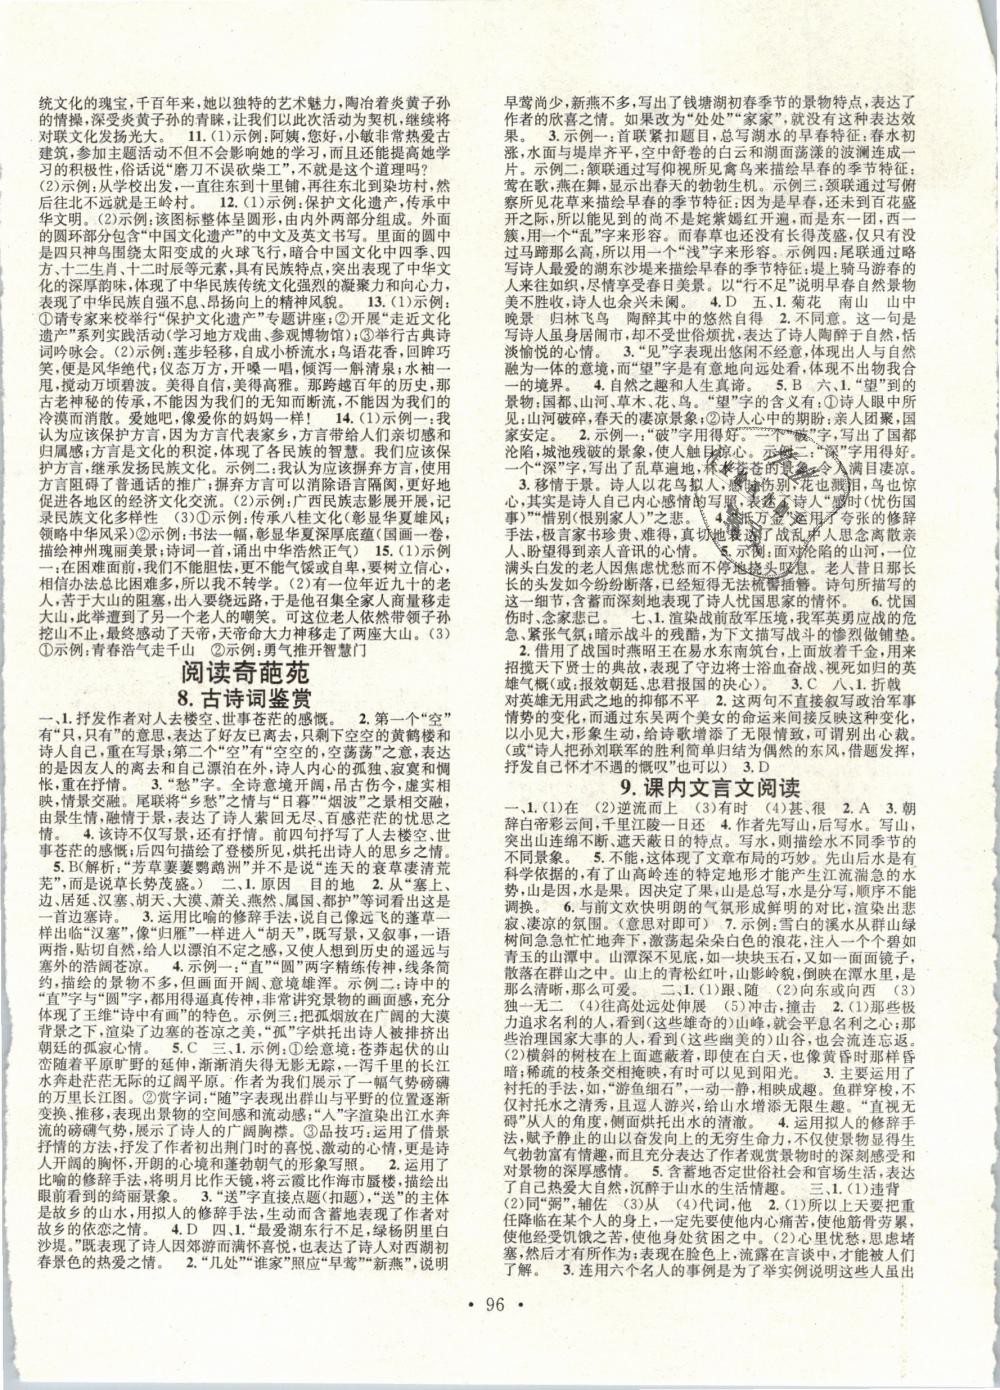 统文化的瑰宝，千百年来，她以独特的艺术魅力，陶冶着炎黄子孙
的情操，深受炎黄子孙的青睐，让我们以此次活动为契机，继续将
对联文化发扬光大。　11.(1)示例：阿姨，您好，小敏非常热爱古
建筑，参加主题活动不但不会影响她的学习，而且还能提高她学
习的积极性，俗话说“磨刀不误砍柴工”，不就是这个道理吗？
(2)示例：从学校出发，一直往东到十里铺，再往东北到染坊村，然
后往北不远就是王岭村。　12.(1)示例：保护文化遗产，传承中
华文明。(2)示例：该图标整体呈圆形，由内外两部分组成。外面
的圆环部分包含“中国文化遗产”的中文及英文书写。里面的圆中
是四只神鸟围绕太阳变成的火球飞行，暗合中国文化中四季、四
方、十二生肖、十二时辰等元素，具有民族特点，表现了中华文化
的深厚韵味，体现了中华民族传统文化强烈的凝聚力和向心力，
表现了中华民族自强不息、昂扬向上的精神风貌。　13.(1)示例：
①请专家来校举行“保护文化遗产”专题讲座；②开展“走近文化
遗产”系列实践活动(学习地方戏曲、参观博物馆)；③举行古典诗
词吟咏会。(2)示例：莲步轻移，自成小桥流水；鸟语花香，回眸巧
笑，便是风华绝代；仪态万方，开嗓一唱，倾泻一斛清泉；水袖一
甩，搅动万顷碧波。美得自信，美得高雅。那跨越百年的历史，那
古老神秘的传承，不能因为我们的无知而断流，不能因为我们的
冷漠而消散。爱她吧，像爱你的妈妈一样！　14.(1)示例一：我
认为应该保护方言，因为方言代表家乡，方言带给人们亲切感和
归属感；方言是文化的积淀，体现了各民族的智慧。我们应该保
护方言，继承发扬民族文化。示例二：我认为应该摒弃方言，使用
方言阻碍了普通话的推广；摒弃方言可以消除语言隔阂，更好地
促进各地区的经济文化交流。(2)示例：广西民族志影展开展，记
录民族文化多样性　(3)①示例：传承八桂文化(彰显华夏雄风；
领略中华风采)　②示例：书法一幅，彰显华夏深厚底蕴(国画一卷，
描绘神州瑰丽美景；诗词一首，诵出中华浩然正气)　15.(1)示例
一：在困难面前，我们不能胆怯，更不能气馁或自卑，要树立信心，
相信办法总比困难多，所以我不转学。(2)有一位年近九十的老
人，苦于大山的阻塞，出入要绕远路，于是他召集全家人商量移走
大山，此举遭到了另一个老人的嘲笑。可这位老人依然带领子孙
挖山不止，最终感动了天帝，天帝命大力神移走了两座大山。(3)
①示例：青春浩气走千山　②示例：勇气推开智慧门
阅读奇葩苑
8. 古诗词鉴赏
一、1.抒发作者对人去楼空、世事苍茫的感慨。　2.第一个“空”
有“只，只有”的意思，表达了好友已离去，只剩下空空的黄鹤楼和
诗人自己，重在写景；第二个“空”有“空空的，空荡荡”之意，表达
的是因友人的离去和自己漂泊在外，诗人内心的孤独、寂寞和惆
怅，重在抒情。　3.“愁”字。全诗意境开阔，吊古伤今，虚实相
映，情景交融。尾联将“乡愁”之情与“日暮”“烟波”之景相交融，
由景生情，情融于景，表达了诗人萦回无尽、百感茫茫的忧思之
情。　4.该诗不仅写景，还有抒情。前四句抒写了人去楼空、世
事茫茫的感慨；后四句描绘了登楼所见，烘托出诗人的思乡之情。
5.B(解析：“芳草萋萋鹦鹉洲”并不是说“连天的衰草凄清荒
芜”，而是说草长势茂盛。)　二、1.原因　目的地　2.从“塞上、
边、居延、汉塞、胡天、大漠、萧关、燕然、属国、都护”等词看出这是
一首边塞诗。　3.运用比喻的修辞手法，说自己像远飞的蓬草一
样出临“汉塞”，像“归雁”一样进入“胡天”，既写景，又叙事，一语
两指，贴切自然，给人以漂泊不定之感，又使人想到历史的遥远与
塞外的浩阔苍凉。　4.示例一：“直”“圆”两字精练传神，线条简
约，描绘的景物不多，但画面开阔、意境雄浑。示例二：诗中的
“直”字与“圆”字，都用得逼真、传神，非常讲究景物的画面感，充分
体现了王维“诗中有画”的特色。示例三：把孤烟放在广阔的大漠
背景之下，渲染了边塞的苍凉之美，“孤”字烘托出诗人被排挤出
朝廷的孤寂心情。　5.C　三、1.示例：①绘意境：苍莽起伏的山
峦随着平原旷野的延伸，渐渐消失在眼前，一泻千里的长江
水奔赴茫茫无际的辽阔平原。作者为我们展示了一幅气势磅礴
的万里长江图。②赏字词：“随”字表现出群山与平野的位置逐渐
变换、推移，表现出景物的空间感和流动感；“入”字渲染出江水奔
流的磅礴气势，展示了诗人的广阔胸襟。③品技巧：运用了借景
抒情的方法，抒发了作者初出荆门时的喜悦、激动的心情，更是诗
人开阔的胸怀，开朗的心境和蓬勃朝气的形象写照。　2.运用了
比喻的修辞手法，将明月比作天镜，将云霞比作海市蜃楼，描绘出
眼前看到的绮丽景象。　3.“送”字直接点题(扣题)，“送”的主体
是故乡的山水，用拟人的修辞手法，生动而含蓄地表现了作者对
故乡的依恋之情。　4.D　四、1.“最爱湖东行不足，绿杨阴里白
沙堤。”既表现了诗人因郊游而满怀喜悦，也表达了诗人对西湖初
春景色的热爱之情。　2.“几处”“谁家”照应“早莺”“新燕”，说明
早莺尚少，新燕不多，写出了钱塘湖初春季节的景物特点，表达了
作者的欣喜之情。如果改为“处处”“家家”，就没有这种表达效
果。　3.示例一：首联紧扣题目，总写湖水的早春特征：春水初
涨，水面与堤岸齐平，空中舒卷的白云和湖面荡漾的波澜连成一
片。示例二：颔联通过写仰视所见禽鸟来描绘早春的季节特征：
莺在歌，燕在舞，显示出春天的勃勃生机。示例三：颈联通过写俯
察所见花草来描绘早春的季节特征：因为是早春，还未到百花盛
开之际，所以能见到的尚不是姹紫嫣红开遍，而是东一团，西一
簇，用一个“乱”字来形容。而春草也还没有长得茂盛，仅只有没
过马蹄那么高，所以用一个“浅”字来形容。示例四：尾联通过略
写诗人最爱的湖东沙堤来描绘早春的季节特征：堤上骑马游春的
人来往如织，尽情享受春日美景。以“行不足”说明早春自然景物
美不胜收，诗人也余兴未阑。　4.D　五、1.菊花　南山　山中
晚景　归林飞鸟　陶醉其中的悠然自得　2.不同意。这一句是
写诗人虽身居闹市，却不受世俗烦扰，表达了诗人陶醉于自然，恬
淡愉悦的心情。　3.“见”字表现出悠闲不经意，体现出人与自然
融为一体的意境，而“望”字是有意地向远处看，体现不出物我合
一的境界。　4.自然之趣和人生真谛。　5.B　六、1.“望”到的
景物：国都、山河、草木、花、鸟。“望”字的含义有：①诗人眼中所
见，山河破碎，春天的凄凉景象；②诗人心中的期盼：亲人团聚，国
家安定。　2.示例一：“破”字用得好。一个“破”字，写出了国都
沦陷，城池残破的景象，使人触目惊心。示例二：“深”字用得好。
一个“深”字，写出了乱草遍地，林木苍苍的景象，令人满目凄凉。
3.移情于景。诗人以花鸟拟人，感时伤别，花也溅泪，鸟也惊
心，其实是诗人自己内心感情的写照，表达了诗人“感时(忧伤国
事)”“惜别(恨别家人)”之悲。　4.“抵万金”运用了夸张的修辞
手法，言家书珍贵、难得，真切地表达了战乱中人思念离散亲
人、盼望得到亲人音讯的心情。　5.示例：面对沦陷的山河，一位
满头白发的老人因焦虑忧愁而不停地挠头叹息。老人昔日那长
长的头发如今纷纷断落，已经短得无法梳髻插簪。诗句所描写的
这一细节，含蓄而深刻地表现了诗人忧国思家的情怀。　6.忧国
伤时、念家悲己。　七、1.渲染战前敌军压境的危急、我军英勇应战的危
急、紧张气氛；暗示战斗的残酷，为下文描写战斗的惨烈做铺垫。
2.借用了战国时燕昭王在易水东南筑台，上面放着千金，用来
招揽天下贤士的典故，表现了守边将士浴血奋战、视死如归的英
雄气概(或：报效朝廷、忠心报国的决心)。　3.C　八、1.折戟
对英雄无用武之地的抑郁不平　2.这两句不直接叙写政治军事
情势的变化，而通过东吴两个美女的命运来间接反映这种变化，
以小见大，形象生动，给诗歌增添了无限情致，可谓别出心裁。
(或“诗人把孙刘联军的胜利简单归结为偶然的东风，借题发挥，
抒发自己怀才不遇的慨叹”也可以)　3.D
9. 课内文言文阅读
一、1.(1)在　(2)逆流而上　(3)有时　(4)甚、很　2.A　3.朝
辞白帝彩云间，千里江陵一日还　4.作者先写山，后写水。写山，
突出山连绵不断、遮天蔽日的特点。写水，则描绘水不同季节的
不同景象。　5.不能，这体现了文章布局的巧妙。先山后水是有
依据的，有了山高岭连的特定地形才能产生江流湍急的水
势，山是因，水是果。因决定了果，山是总，水是分写，顺序不能
调换。　6.与前文欢快明朗的气氛形成鲜明的对比，渲染出悲
寂、凄凉的氛围。(意思对即可)　7.示例：雪白的溪水从群山绿
树间急急忙忙地奔下，激荡起朵朵白色的浪花，注入一个个碧如
青玉的山潭中。山潭深不见底，如一块块玉石，又如一面面镜子，
散落在群山之中。山上的青松红叶，山影岭貌，倒映在潭水里，是
那么清晰，那么可爱。　二、1.(1)跟、随　(2)向东或向西　(3)
独一无二　(4)往高处远处伸展　(5)冲击，撞击　2.(1)那些极
力追求名利的人，看到(这些雄奇的)山峰，就会平息名利之心；那
些治理国家大事的人，看到(这些幽美的)山谷，也会流连忘返。
(2)横斜的树枝在上面遮蔽着，即使在白天，也像黄昏时那样昏
暗；稀疏的枝条交相掩映，有时可以见到阳光。　3.主要运用了
衬托的手法，如“游鱼细石”，一动一静，相映成趣。鱼群穿梭，不
仅衬托水之清秀，且逗人游兴，给山水增添无限生趣。“直视无
碍”从人的角度，侧面烘托出水的清澈。　4.运用拟人的修辞手
法，赋予静止的山以奋发向上的无穷生命力，使景物显得生
气勃勃富有情趣，而且充分表达了作者观赏景物时的深刻感受和
对景物的深厚感情。　5.含蓄地否定世俗社会和官场生活，表达
了自己热爱大自然，沉醉于山水的生活情趣。　三、1.(1)违背
(2)同“弼”，辅佐　(3)从　(4)代词，他　2.(1)所以上天要把重
任降临在某个人的身上，一定先要使他内心痛苦，使他筋骨劳累，
使他经受饥饿，使他身处贫困之中。(2)内心忧愁，思虑堵
塞，然后才有所作为；表现在脸色上，流露在言谈中，才能被人们
了解。　3.连用六个名人的事例是为了举实例说明这些人虽出
• 96 •